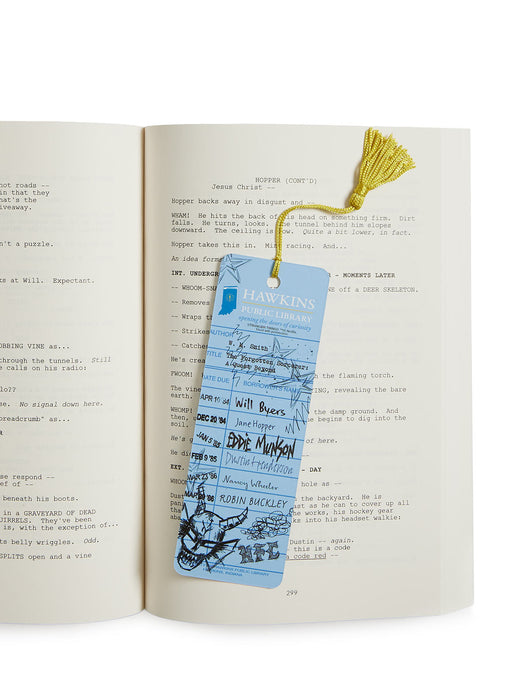 not roads --
in that they
that's the
giveaway.
n't a puzzle.
ks at Will.  Expectant.
OBBING VINE as...
through the tunnels.  Still
e calls on his radio:
llo??
se.  No signal down here.
readcrumb" as...
se respond --
ef of --
beneath his boots.
in a GRAVEYARD OF DEAD
UIRRELS.  They've been
, with the exception of...
belly wriggles.  Odd.
SPLITS open and a vine
HOPPER (CONT'D)
Jesus Christ --
Hopper backs away in disgust and --
WHAM!  He hits the back of his head on something firm.  Dirt
falls.  He turns, looks.  The tunnel behind him slopes
downward.  The ceiling is low.  Quite a bit lower, in fact.
Hopper takes this in.  Mind racing.  And...
An idea
INT. UNDERGR - MOMENTS LATER
-- WHOOM-SNA NE off a DEER SKELETON.
-- Removes
-- Wraps th
-- Strikes
-- Catche
He's crea the flaming torch.
FWOOM! ING, revealing the bare
earth.
WHOOMP! damp ground.  And
He's
EXT. - DAY
WHOOM hole as --
Dust the backyard.  He is
just as he can to cover up all
his hockey gear
works, and
looks into his headset walkie:
Dustin -- again.
this is a code
a code red --
299
HAWKINS
PUBLIC LIBRARY
opening the doors of curiosity
AUTHOR
W. M. Smith
TITLE
The Forgotten Sorcerer:
A Quest Beyond
DATE DUE BORROWER'S NAME
APR 10 '84 Will Byers
DEC 20 '84 Jane Hopper
JAN 5 '85 EDDIE MUNSON
FEB 9 '85 Dustin Henderson
MAR 23 '86 Nancy Wheeler
MAR 29 '86 ROBIN BUCKLEY
HFC
HAWKINS PUBLIC LIBRARY
HAWKINS, INDIANA